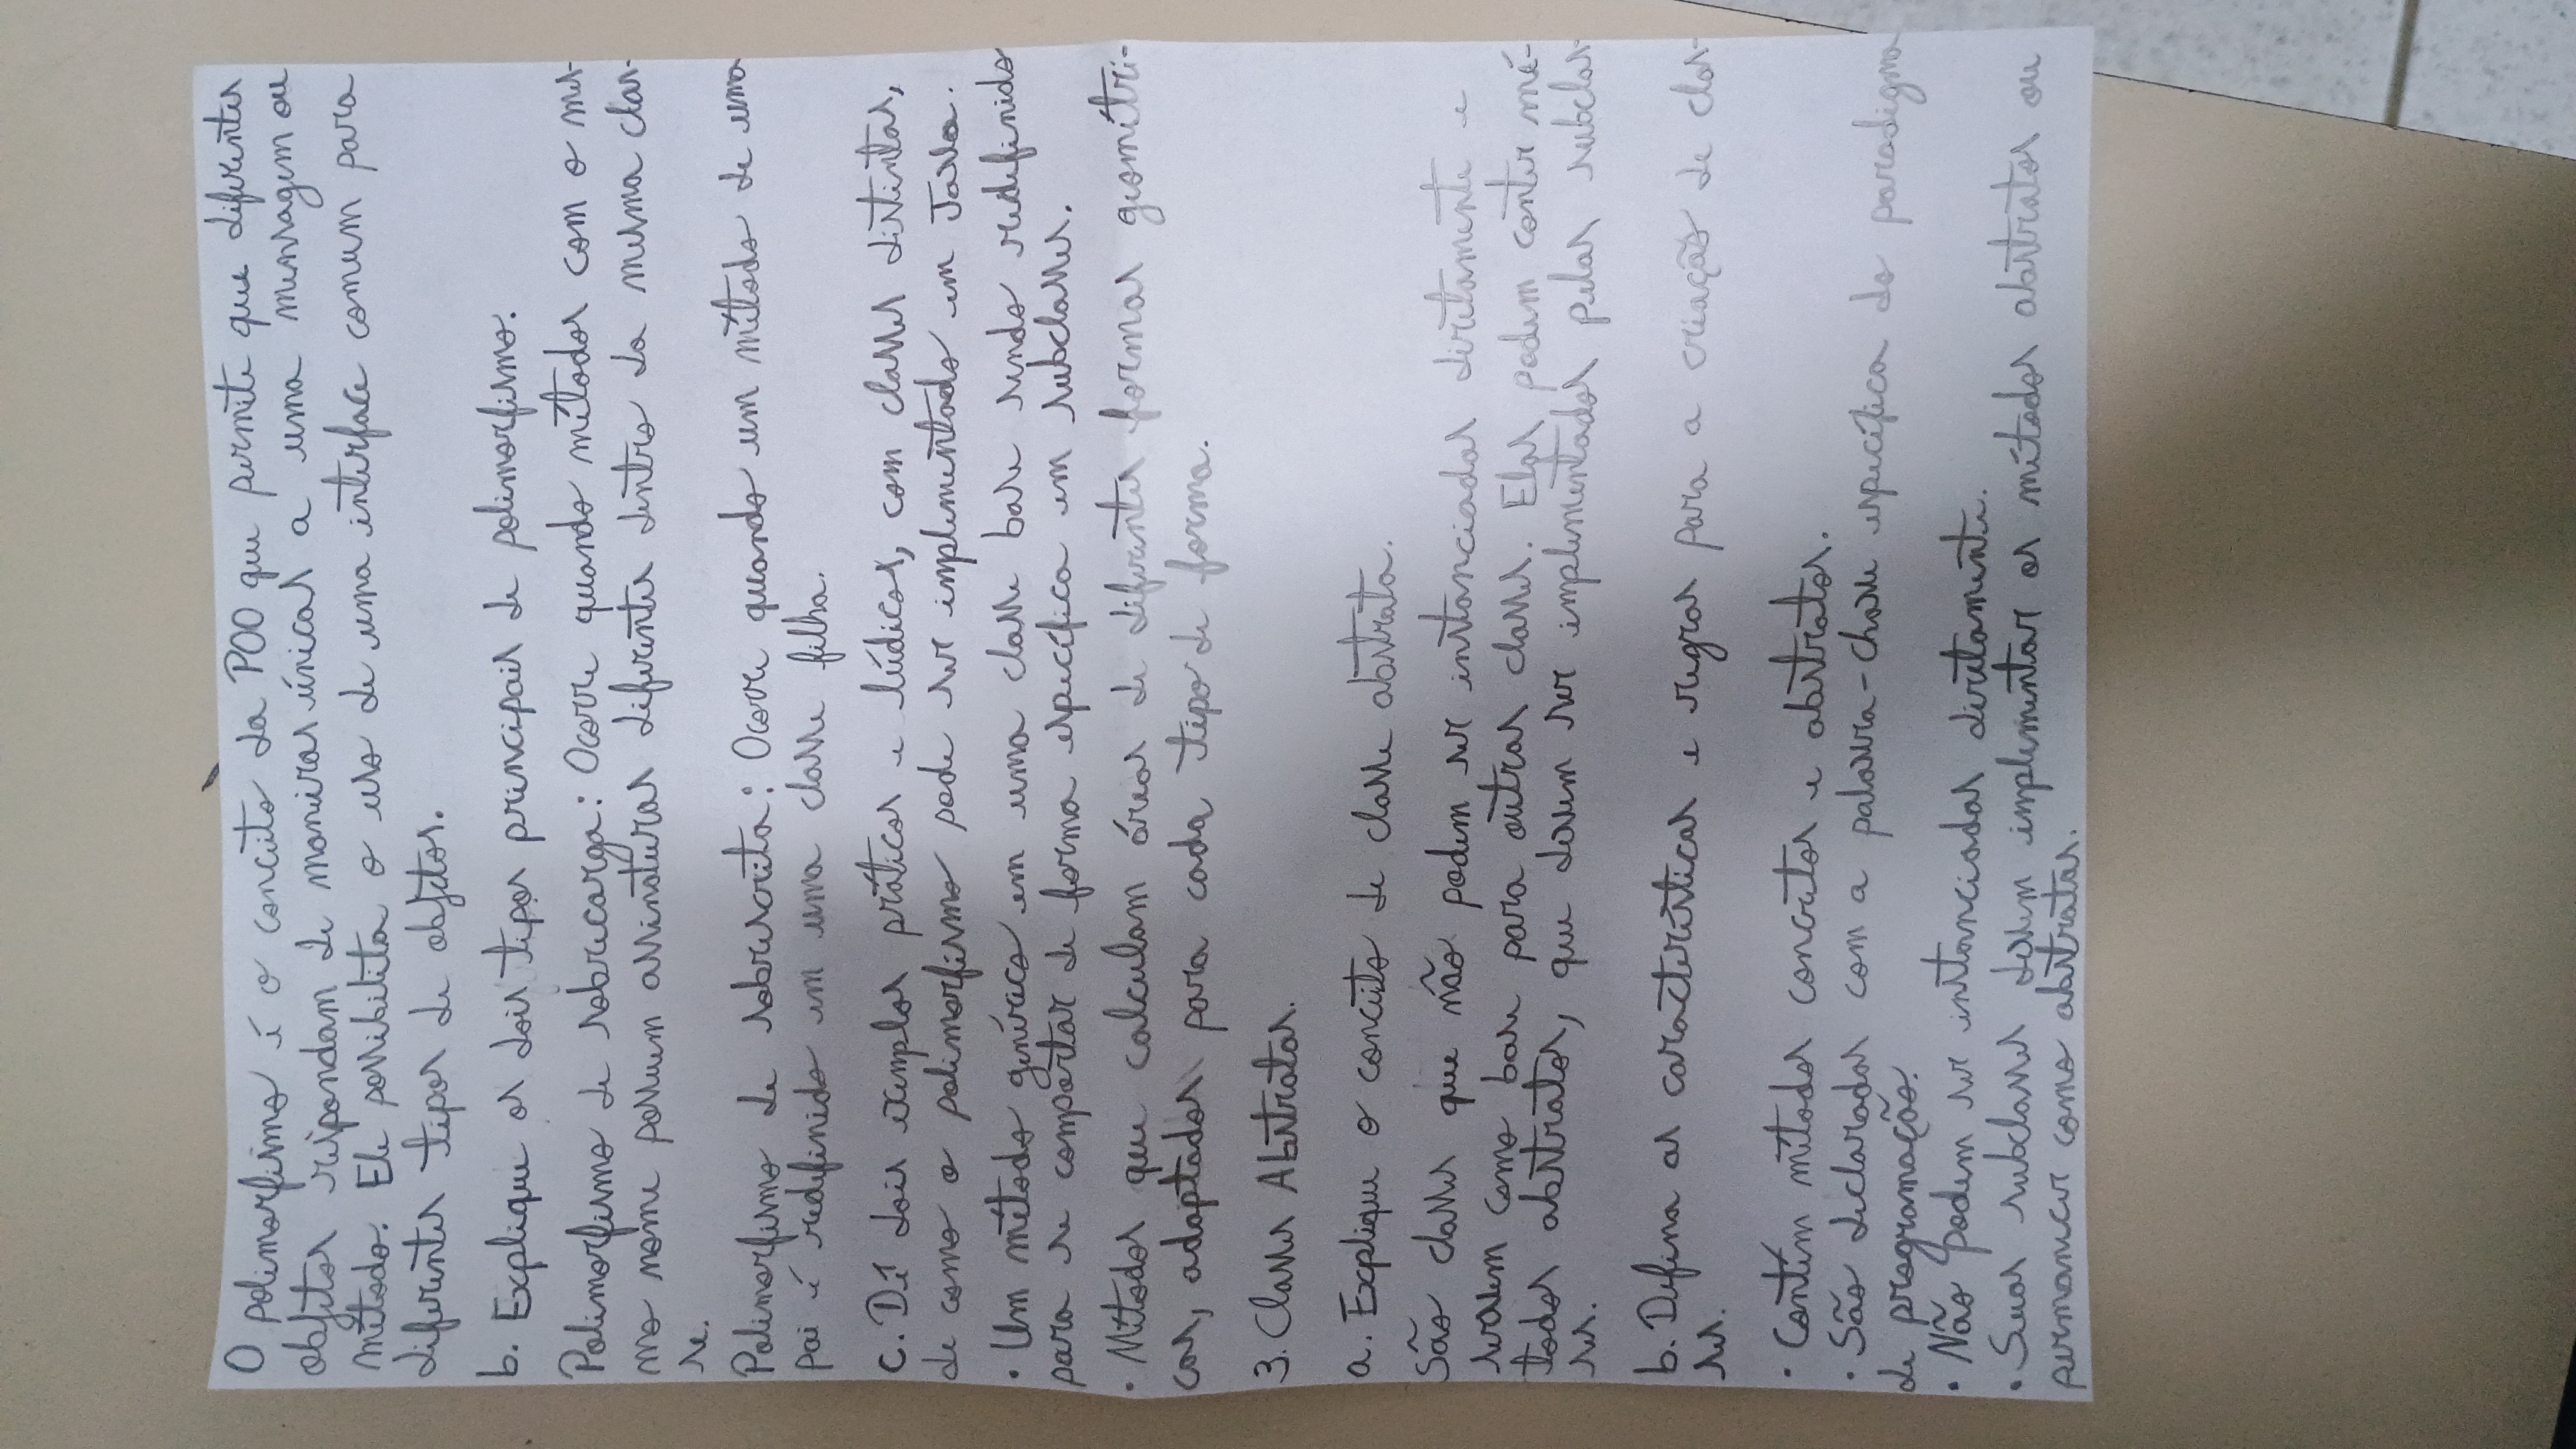 O polimorfismo é o conceito da POO que permite que diferentes
objetos respondam de maneiras únicas a uma mensagem ou
método. Ele possibilita o uso de uma interface comum para
diferentes tipos de objetos.
b. Explique os dois tipos principais de polimorfismo.
Polimorfismo de sobrecarga: Ocorre quando métodos com o mes-
mo nome possuem assinaturas diferentes dentro da mesma clas-
se.
Polimorfismo de sobrescrita: Ocorre quando um método de uma
pai é redefinido em uma classe filha.
c. Dê dois exemplos práticos e lúdicos, com classes distintas,
de como o polimorfismo pode ser implementado em Java.
• Um método genérico em uma classe base sendo redefinido
para se comportar de forma específica em subclasses.
• Métodos que calculam áreas de diferentes formas geométri-
cas, adaptados para cada tipo de forma.
3. Classes Abstratas.
a. Explique o conceito de classe abstrata.
São classes que não podem ser instanciadas diretamente e
servem como base para outras classes. Elas podem conter mé-
todos abstratos, que devem ser implementados pelas subclas-
ses.
b. Defina as características e regras para a criação de clas-
ses.
• Contém métodos concretos e abstratos.
• São declaradas com a palavra-chave específica do paradigma
de programação.
• Não podem ser instanciadas diretamente.
• Suas subclasses devem implementar os métodos abstratos ou
permanecer como abstratas.